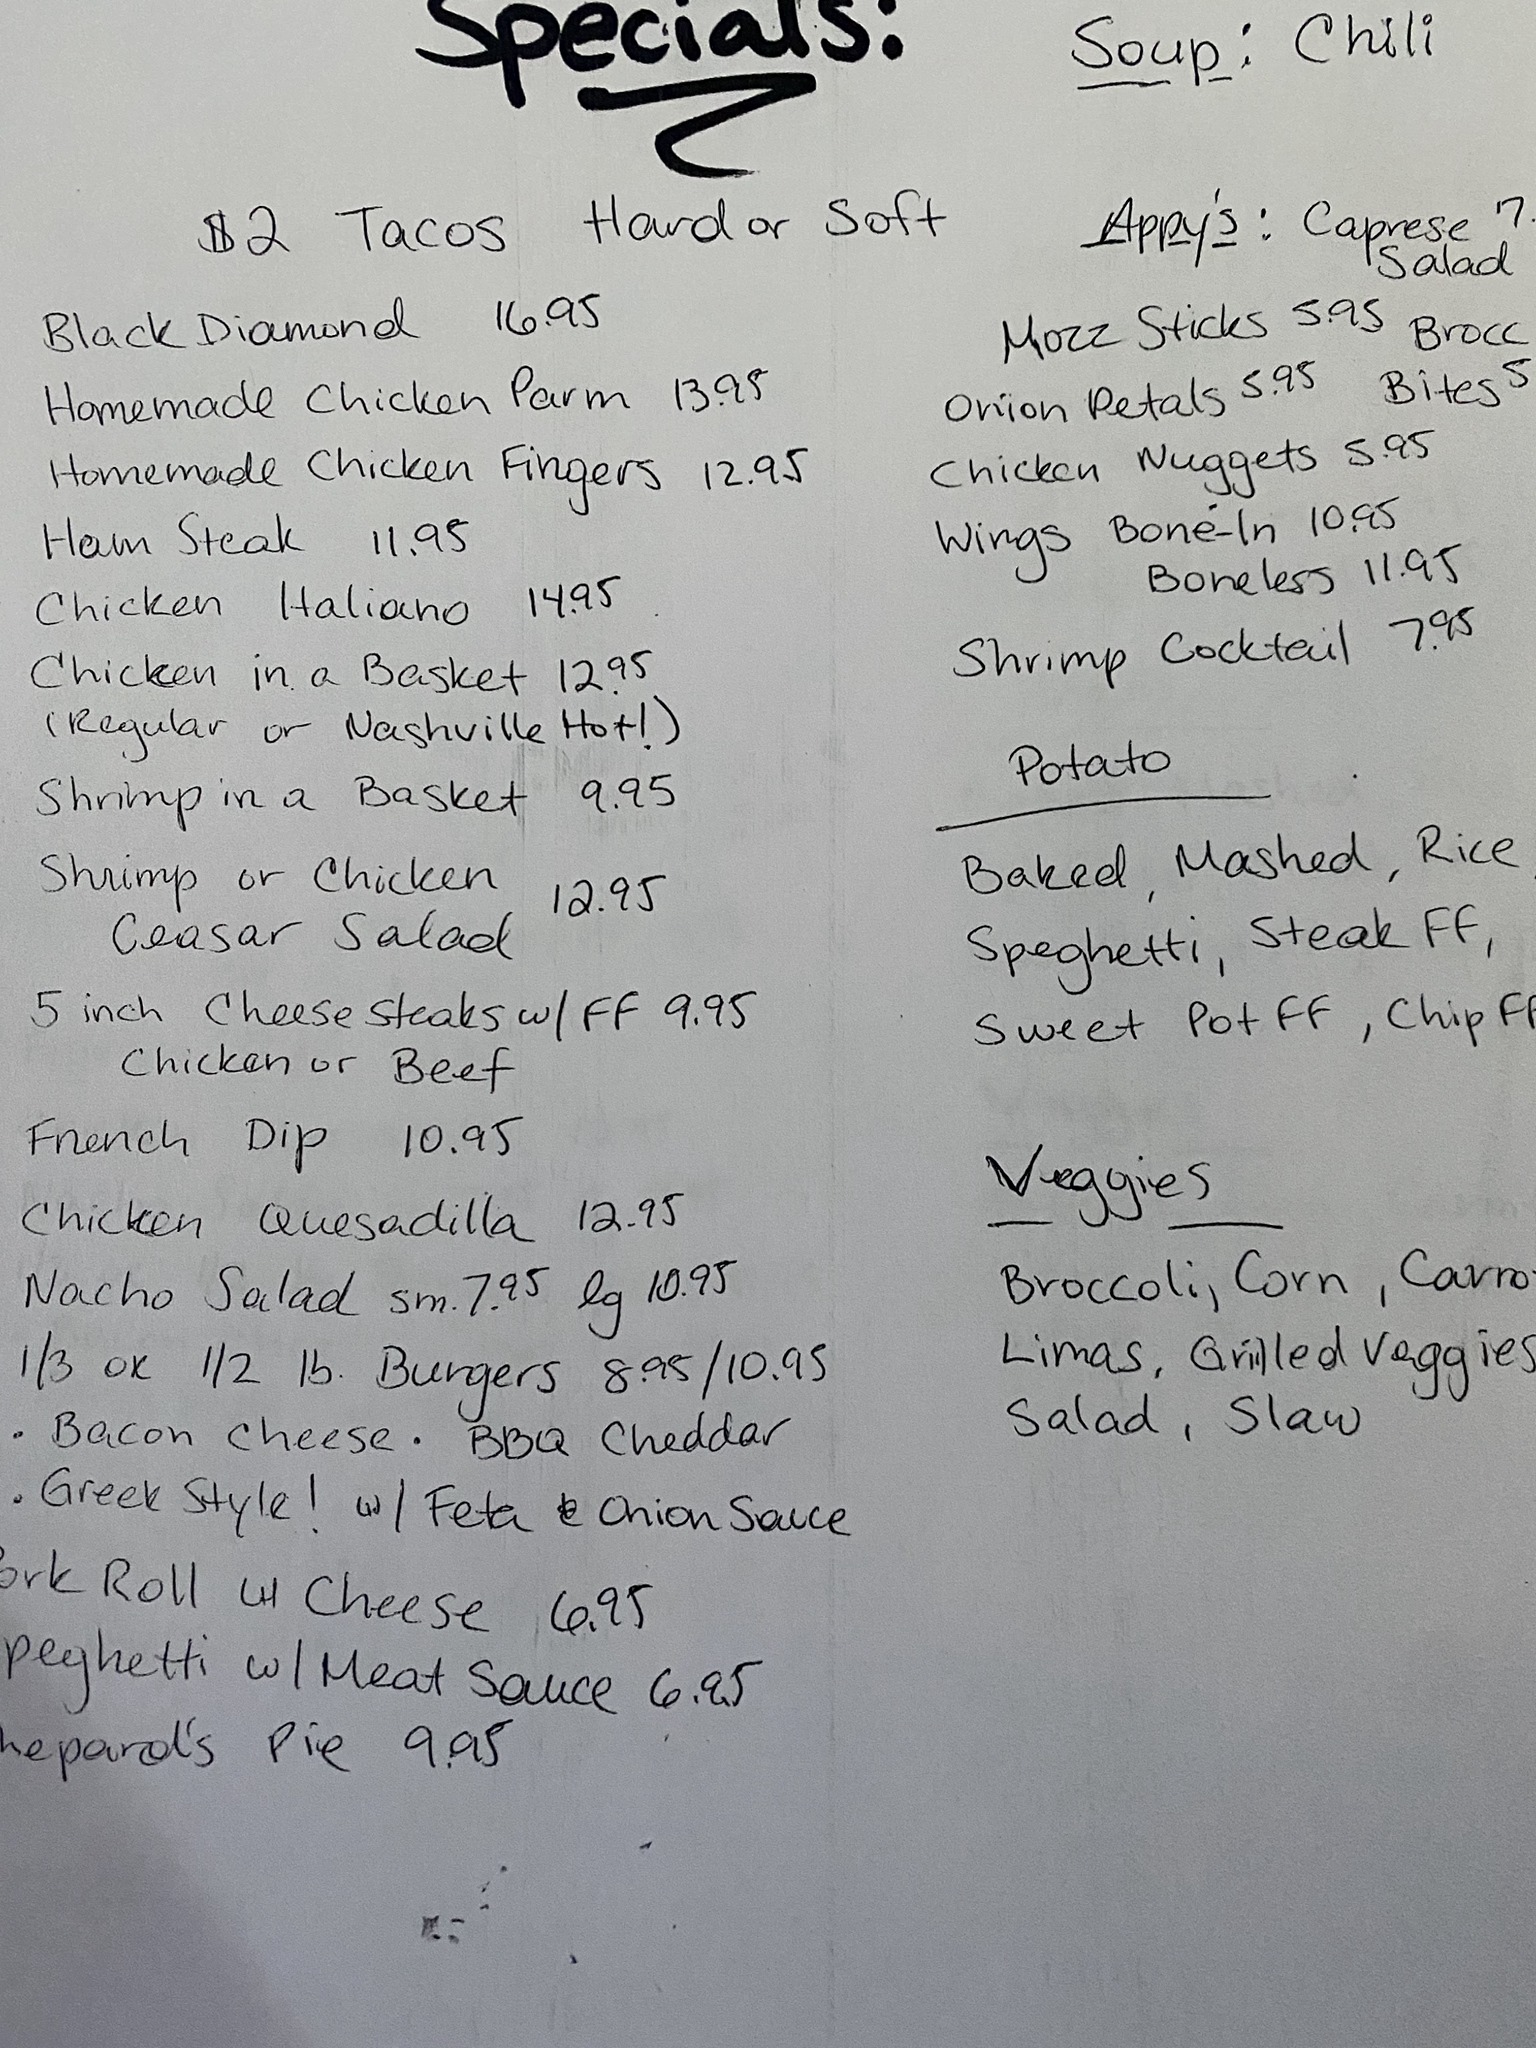 Specials:
$2 Tacos Hard or Soft
Black Diamond 16.95
Homemade Chicken Parm 13.95
Homemade Chicken Fingers 12.95
Ham Steak 11.95
Chicken Italiano 14.95
Chicken in a Basket 12.95
(Regular or Nashville Hot!)
Shrimp in a Basket 9.95
Shrimp or Chicken
Ceasar Salad 12.95
5 inch Cheesesteaks w/ FF 9.95
Chicken or Beef
French Dip 10.95
Chicken Quesadilla 12.95
Nacho Salad sm. 7.95 lg 10.95
1/3 or 1/2 lb. Burgers 8.95/10.95
· Bacon Cheese · BBQ Cheddar
· Greek Style! w/ Feta & Onion Sauce
ork Roll w/ Cheese 6.95
peghetti w/ Meat Sauce 6.95
hepard's Pie 9.95
Soup: Chili
Appy's: Caprese 7.
Salad
Mozz Sticks 5.95 Brocc
Onion Petals 5.95 Bites 5
Chicken Nuggets 5.95
Wings Bone-In 10.95
Boneless 11.95
Shrimp Cocktail 7.95
Potato
Baked, Mashed, Rice,
Speghetti, Steak FF,
Sweet Pot FF, Chip FF
Veggies
Broccoli, Corn, Carro
Limas, Grilled Veggies
Salad, Slaw